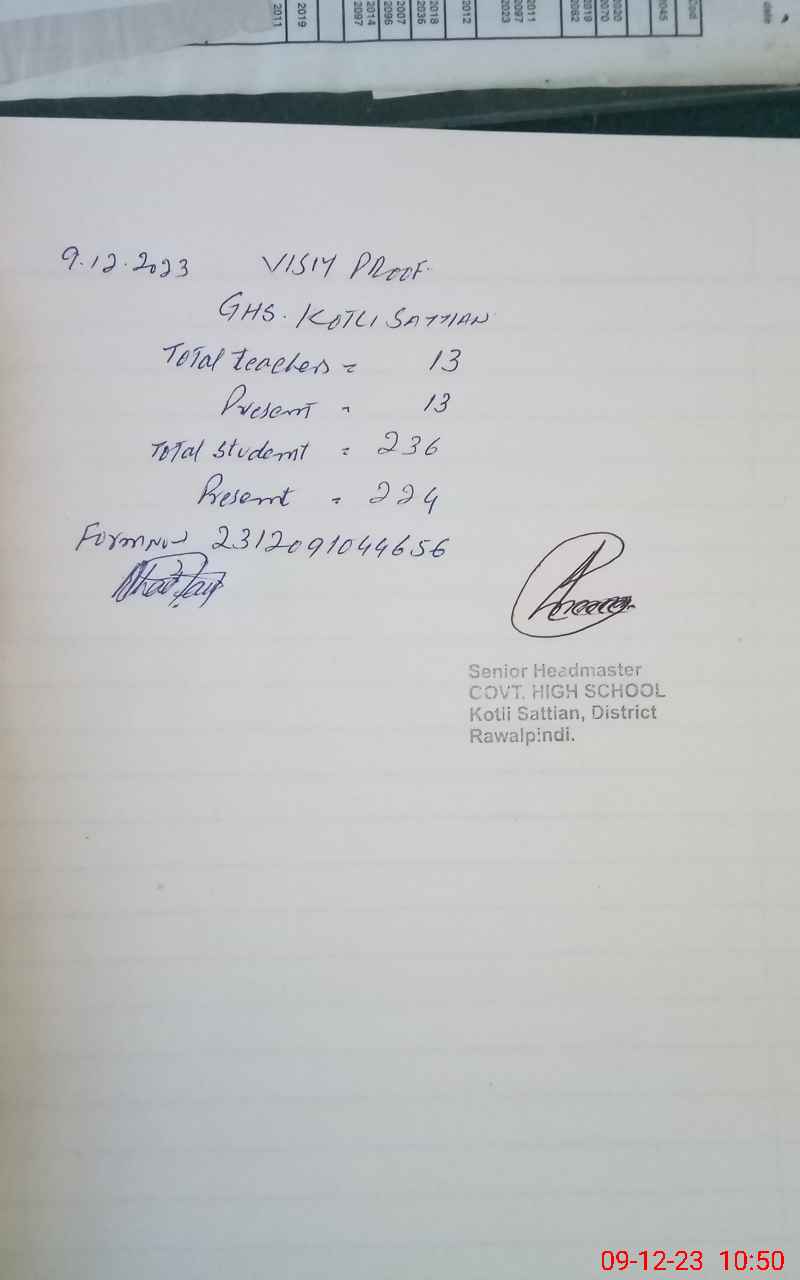 2011
2019
2014
2097
2007
2096
2018
2036
2012
2011
2097
2023
2019
2082
2020
2070
2045
date
9.12.2023 VISIT PROOF.
GHS. KOTLI SATTIAN
Total teachers = 13
Present = 13
Total student = 236
Present = 224
Form No 2312091044656
Senior Headmaster
GOVT. HIGH SCHOOL
Kotli Sattian, District
Rawalpindi.
09-12-23 10:50